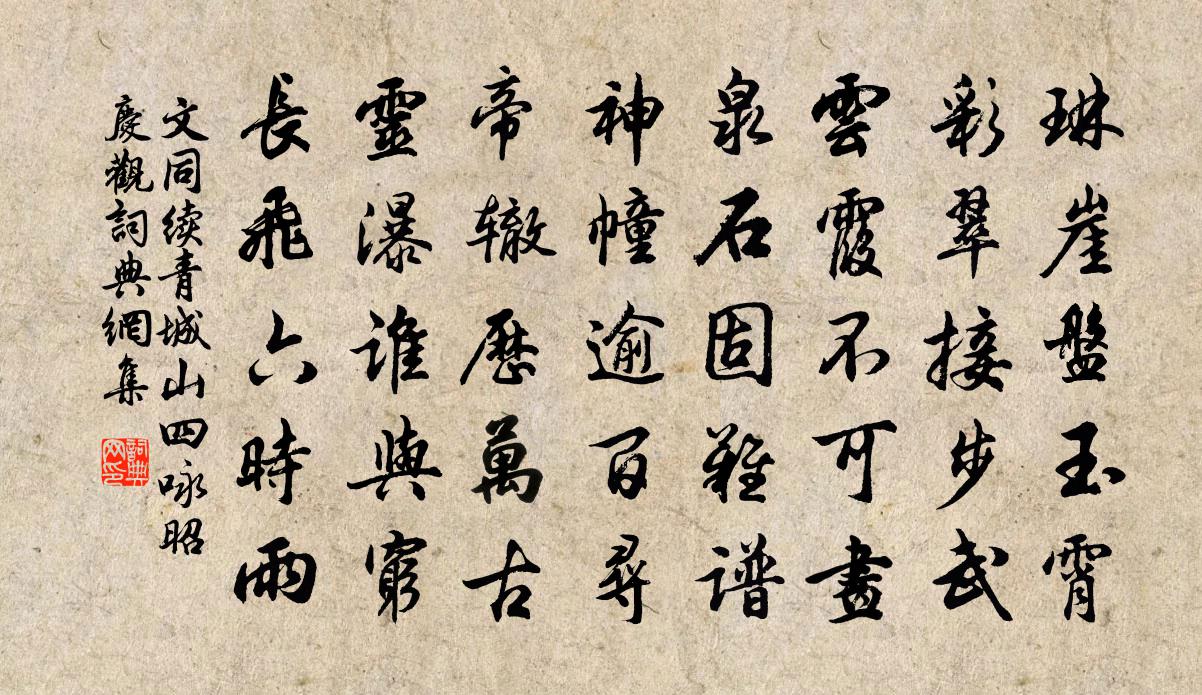 琳崖盤玉霄
彩翠接步武
雲霞不可畫
泉石固難譜
神幢逾百尋
帝辙歷萬古
靈瀑誰與窮
長飛六時雨
文同续青城山四咏昭
慶觀詞典網集
詞典
网印